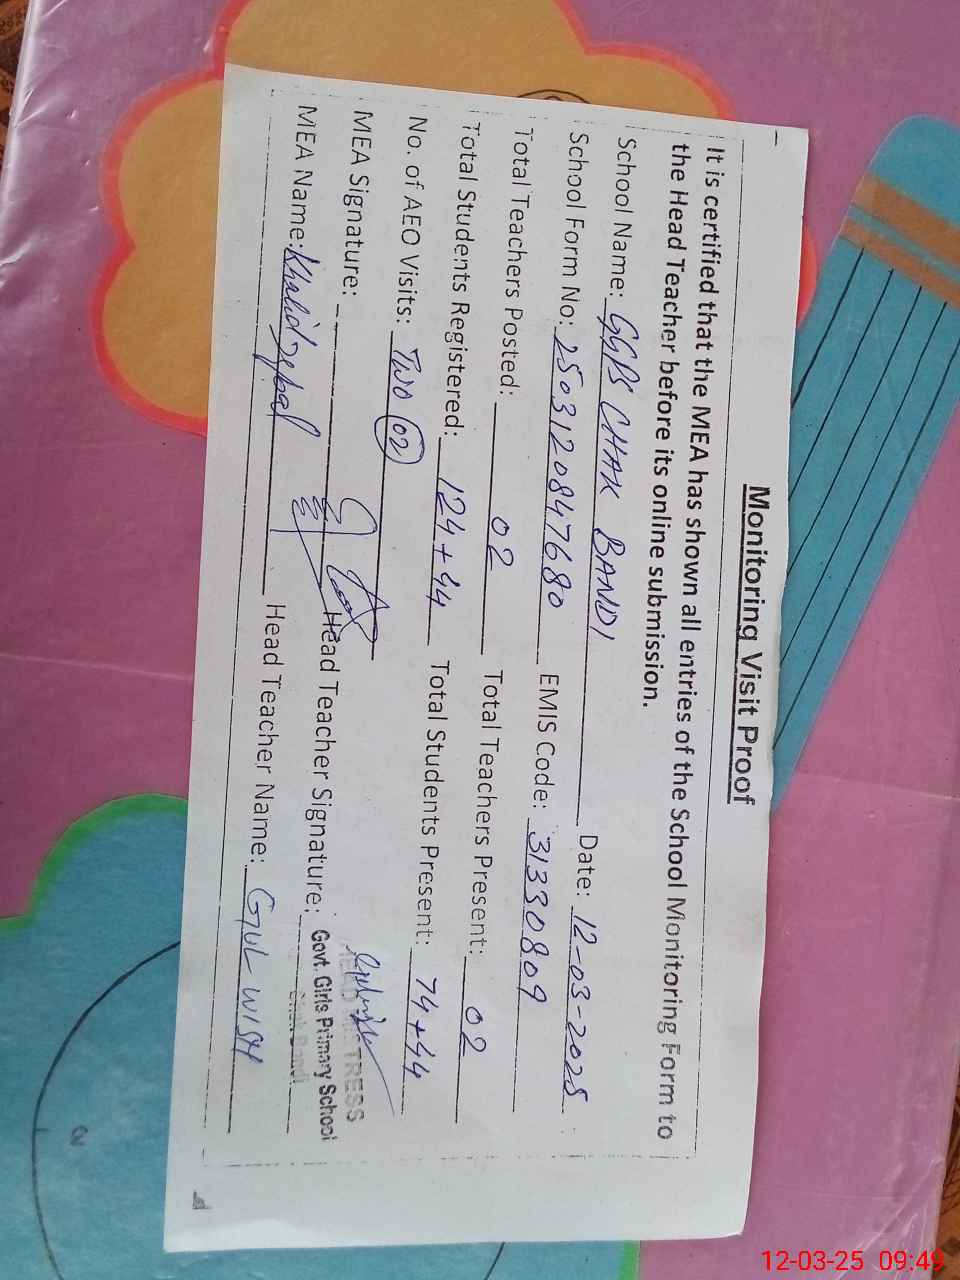 Monitoring Visit Proof
It is certified that the MEA has shown all entries of the School Monitoring Form to
the Head Teacher before its online submission.
School Name: GGPS CHAK BANDI Date: 12-03-2025
School Form No: 2503120847680 EMIS Code: 31330809
Total Teachers Posted: 02 Total Teachers Present: 02
Total Students Registered: 124+44 Total Students Present: 74+44
No. of AEO Visits: Two (02)
MEA Signature: Head Teacher Signature:
HEAD MISTRESS
Govt. Girls Primary School
Chak Bandi
MEA Name: Khalid Iqbal Head Teacher Name: GUL WISH
12-03-25 09:49